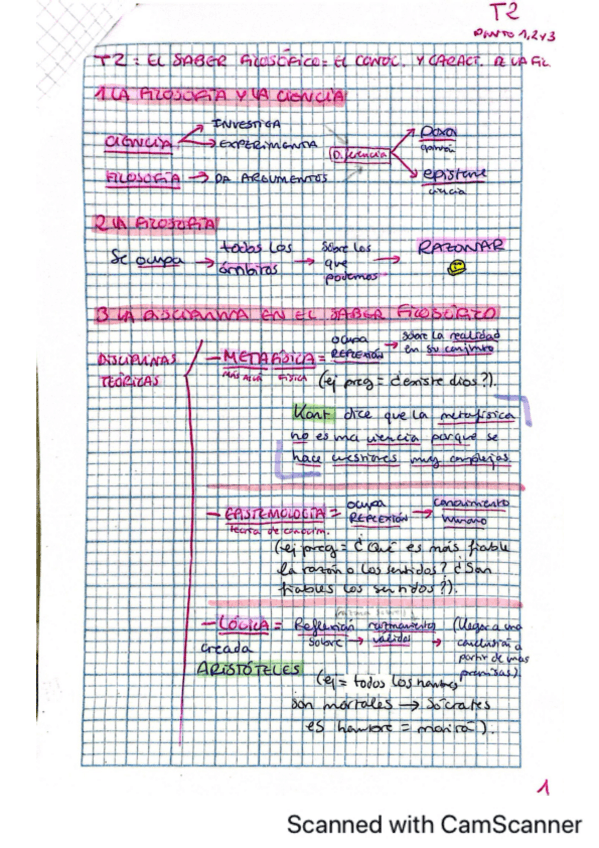 T2
PUNTO 1,2 Y 3
T2: EL SABER FILOSÓFICO: EL CONOC. Y CARACT. DE LA FIL
1. LA FILOSOFÍA Y LA CIENCIA
CIENCIA → INVESTIGA
→ EXPERIMENTA
Diferencia → Doxa
opinión
FILOSOFÍA → DA ARGUMENTOS
→ episteme
ciencia
2 LA FILOSOFÍA
Se ocupa → todos los ámbitos → sobre los que podemos → RAZONAR
3 LA DISCIPLINA EN EL SABER FILOSÓFICO
DISCIPLINAS TEÓRICAS
- METAFÍSICA = ocupa REFLEXIÓN → sobre la realidad en su conjunto
MÁS ALLÁ FÍSICA
(ej preg = ¿existe dios?).
Kant dice que la metafísica
no es una ciencia porque se
hace cuestiones muy complejas.
- EPISTEMOLOGÍA = ocupa REFLEXIÓN → conocimiento humano
teoría de conocim.
(ej preg = ¿Qué es más fiable
la razón o los sentidos? ¿Son
fiables los sentidos?).
- LÓGICA = Reflexión sobre → razonamiento válidos → (llegar a una conclusión a partir de unas premisas).
creada
ARISTÓTELES
(ej = todos los hombres
son mortales → Sócrates
es hombre = morirá).
1
Scanned with CamScanner